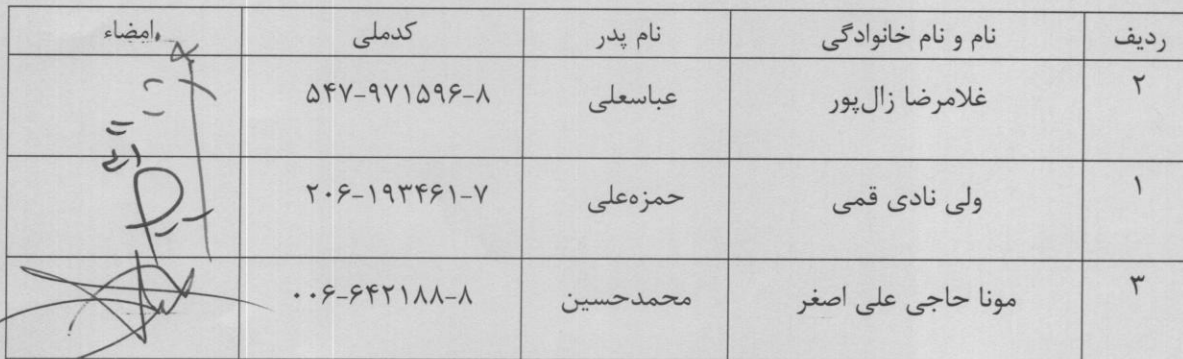 ردیف نام و نام خانوادگی نام پدر کدملی امضاء
۲ غلامرضا زال‌پور عباسعلی ۵۴۷-۹۷۱۵۹۶-۸
۱ ولی نادی قمی حمزه‌علی ۲۰۶-۱۹۳۴۶۱-۷
۳ مونا حاجی علی اصغر محمدحسین ۰۰۶-۶۴۲۱۸۸-۸